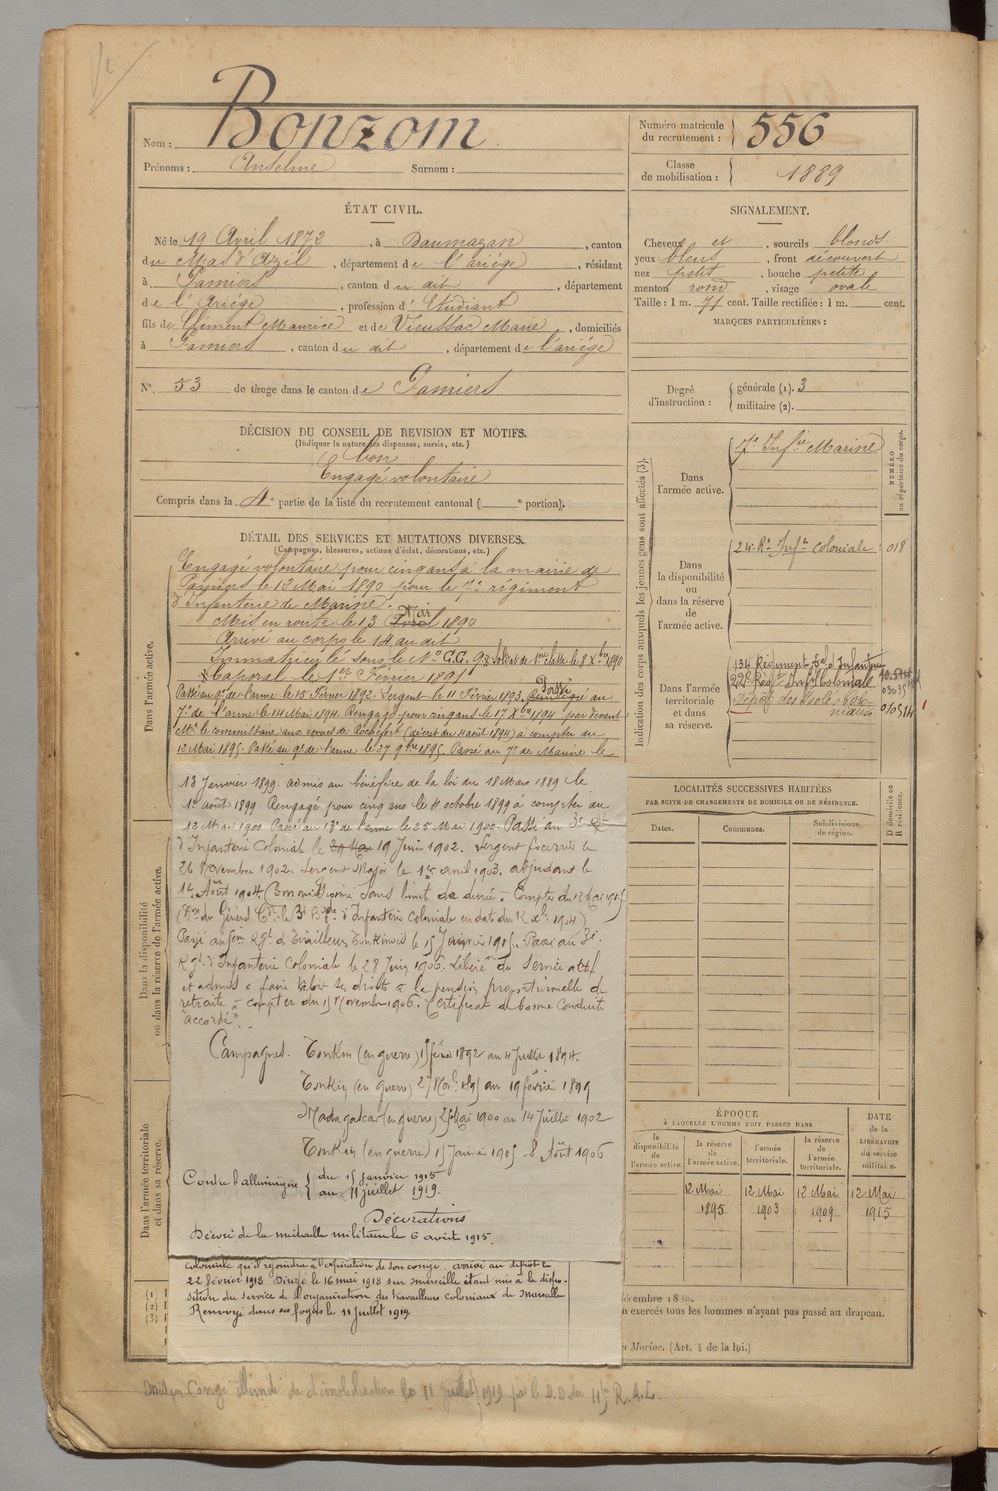 Nom : Bonzom
Prénoms : Anselme Surnom :
Numéro matricule du recrutement : 556
Classe de mobilisation : 1889
ÉTAT CIVIL.
Né le 19 Avril 1872, à Daumazan, canton
du Mas d'Azil, département de l'ariége, résidant
à Pamiers, canton du dit, département
de l'Ariége, profession d'Etudiant
fils de Clément Maurice et de Vieussac Marie, domiciliés
à Pamiers, canton du dit, département de l'ariége
N° 53 de tirage dans le canton de Pamiers
SIGNALEMENT.
Cheveux et, sourcils blonds
yeux bleus, front découvert
nez petit, bouche petite
menton rond, visage ovale
Taille : 1 m. 71 cent. Taille rectifiée : 1 m. cent.
MARQUES PARTICULIÈRES :
Degré d'instruction : générale (1). 3
militaire (2).
DÉCISION DU CONSEIL DE REVISION ET MOTIFS.
(Indiquer la nature des dispenses, sursis, etc.)
bon
Engagé volontaire
Compris dans la 4e partie de la liste du recrutement cantonal ( e portion).
DÉTAIL DES SERVICES ET MUTATIONS DIVERSES.
(Campagnes, blessures, actions d'éclat, décorations, etc.)
Dans l'armée active.
Engagé volontaire pour cinq ans à la mairie de
Pamiers le 12 Mai 1890 pour le 7e régiment
d'Infanterie de Marine.
Mis en route le 13 Mai 1890
Arrivé au corps le 14 au dit
Immatriculé sous le No G.G. 93 Soldat de 1ère classe le 8 Xbre 1890
Caporal le 1er Février 1891
Passé au 9e de l'arme le 15 Février 1892. Sergent le 11 Février 1893. Passé au
7e de l'arme le 14 Mai 1894. Rengagé pour cinq ans le 17 Xbre 1894 par devant
Mr le commissaire aux revues de Rochefort (décret du 4 août 1894) à compter du
12 Mai 1895. Passé au 9e de l'arme le 27 9bre 1895. Passé au 7e de Marine le
13 Janvier 1899. admis au bénéfice de la loi du 18 Mars 1889 le
1er août 1899. Rengagé pour cinq ans le 4 octobre 1899 à compter du
12 Mai 1900. Passé au 13e de l'arme le 25 Mai 1900. Passé au 3e Rgt
d'Infanterie Coloniale le 19 Juin 1902. Sergent fourrier le
26 Novembre 1902. Sergent Major le 1er avril 1903. adjudant le
1er Août 1904. (Commissionné sans limite de durée à Compter du 12 Mai 1905
(Don du Général Ct la 3e Bde d'Infanterie Coloniale en date du 12 xbre 1904)
Passé au 5e Rgt de Tirailleurs Tonkinois le 15 Janvier 1905. Passé au 3e
Rgt d'Infanterie Coloniale le 28 Juin 1906. Libéré du service actif
et admis à faire valoir ses droits à la pension proportionnelle de
retraite à compter du 15 Novembre 1906. Certificat de bonne conduite
"accordé".
Campagnes. Tonkin (en guerre) 15 février 1892 au 4 Juillet 1894.
Tonkin (en guerre) 27 Nov. 1895 au 19 février 1899
Madagascar (en guerre) 25 Mai 1900 au 14 Juillet 1902
Tonkin (en guerre) 15 Janvier 1905 8 Août 1906
Contre l'allemagne du 15 Janvier 1915
au 11 juillet 1919.
Décorations
Décoré de la médaille militaire le 6 août 1915.
coloniale qu'il rejoindra à l'expiration de son congé. arrivé au dépôt le
22 février 1918 Dirigé le 16 mai 1918 sur Marseille étant mis à la dispo-
sition du service de l'organisation des travailleurs coloniaux de Marseille
Renvoyé dans ses foyers le 11 juillet 1919.
Dans la disponibilité ou dans la réserve de l'armée active.
Dans l'armée territoriale et dans sa réserve.
(1)
(2)
(3)
Indication des corps auxquels les jeunes gens sont affectés (3).
NUMÉRO au répertoire du corps.
Dans l'armée active. 7e Inferie Marine
Dans la disponibilité ou dans la réserve de l'armée active. 24e Rt Infie coloniale 018
Dans l'armée territoriale et dans sa réserve. 134 Régiment d'Infanterie
22e Régt Inf. Coloniale
Dépôt des Isolés colo-
niaux
LOCALITÉS SUCCESSIVES HABITÉES
PAR SUITE DE CHANGEMENTS DE DOMICILE OU DE RÉSIDENCE.
Dates. Communes. Subdivisions de région. D domicile ou R résidence.
ÉPOQUE
À LAQUELLE L'HOMME DOIT PASSER DANS
la disponibilité de l'armée active. la réserve de l'armée active. l'armée territoriale. la réserve de l'armée territoriale.
DATE de la LIBÉRATION du service militaire.
12 Mai 1895 12 Mai 1903 12 Mai 1909 12 Mai 1915
exercés tous les hommes n'ayant pas passé au drapeau.
Marine. (Art. 4 de la loi.)
Congé illimité de démobilisation le 11 juillet 1919 par le D.D. du 115 R.A.L.